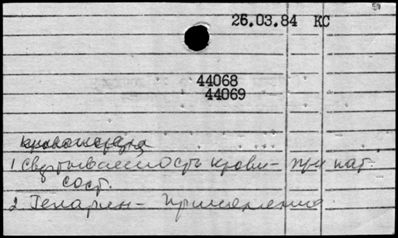 26.03.84 КС
44068
44069
1 Свертываемость крови - при пат.
сост.
2 Гепарин - применение